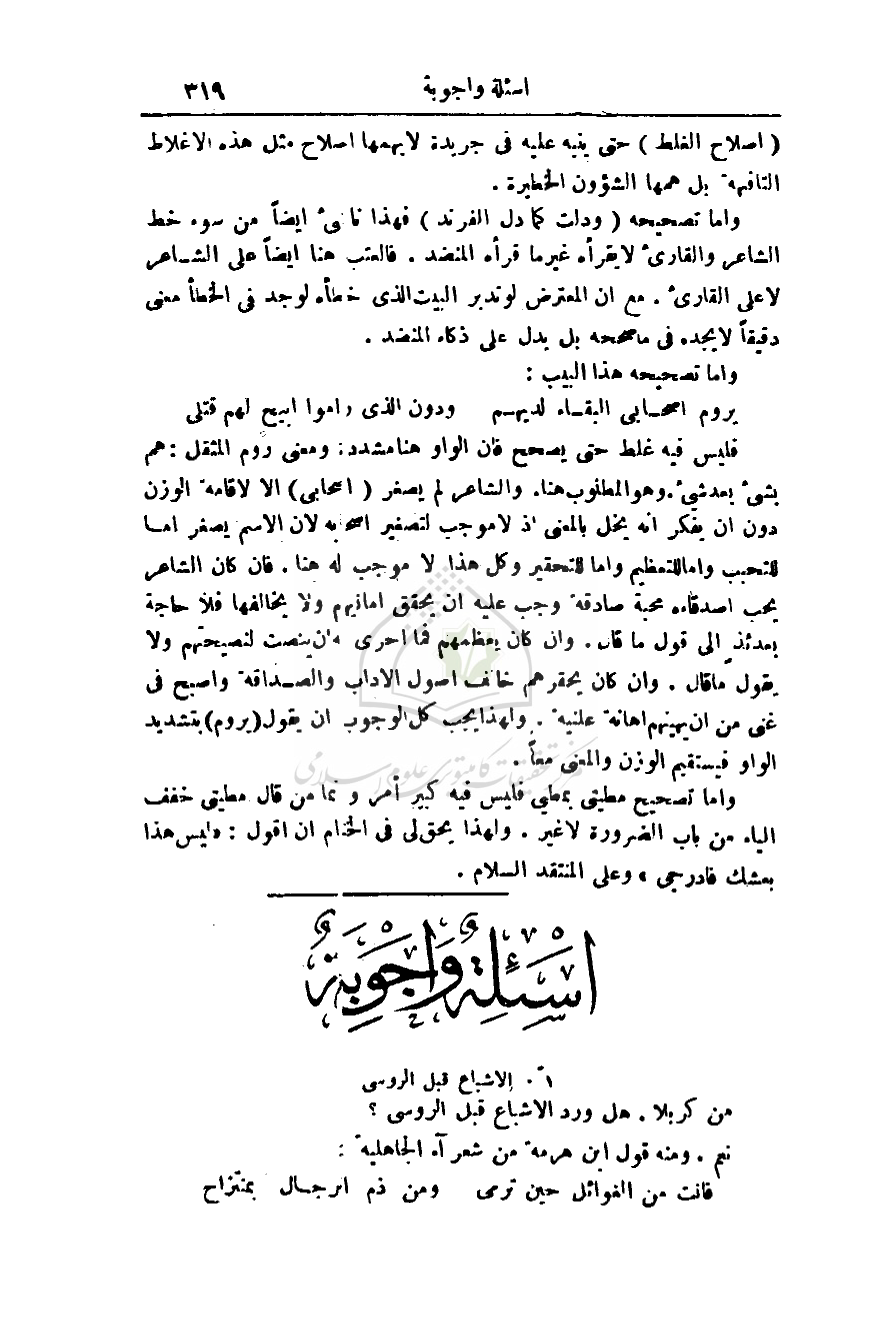 اسئلة واجوبة ٣١٩
( اصلاح الغلط ) حتى ينبه عليه فى جريدة لايهمها اصلاح مثل هذه الاغلاط
التافهة بل همها الشؤون الخطيرة .
واما تصحيحه ( ودلت كما دل الفرند ) فهذا ناشئ ايضاً من سوء خط
الشاعر والقارئ لايقرأه غير ما قرأه المنضد . فالعتب هنا ايضاً على الشاعر
لاعلى القارئ . مع ان المعترض لوتدبر البيت الذى خطأه لوجد فى الخطأ معنى
دقيقاً لايجده فى ماصححه بل يدل على ذكاء المنضد .
واما تصحيحه هذا البيب :
يروم اصحابى البقاء لديهم ودون الذى راموا ابيح لهم قتلى
فليس فيه غلط حتى يصحح فان الواو هنا مشددة ومعنى رَوم المثقل : هم
بشئ بعدشئ . وهو المطلوب هنا . والشاعر لم يصغر ( اصحابى ) الا لاقامة الوزن
دون ان يفكر انه يخل بالمعنى اذ لاموجب لتصغير اصحابه لان الاسم يصغر اما
للتحبب واماللتعظيم واما للتحقير وكل هذا لا موجب له هنا . فان كان الشاعر
يحب اصدقاءه محبة صادقة وجب عليه ان يحقق امانيهم ولا يخالفها فلا حاجة
بعدئذٍ الى قول ما قاله . وان كان يعظمهم فما احرى به ان ينصت لنصيحتهم ولا
يقول ماقال . وان كان يحقرهم خالف اصول الاداب والصداقة واصبح فى
غنى من ان يهينهم اهانة علنية . ولهذا يجب كل الوجوب ان يقول (يروم) بتشديد
الواو فيستقيم الوزن والمعنى معاً .
واما تصحيح مطيتى بمطيي فليس فيه كبير أمر و نما من قال مطيتى خفف
الياء من باب الضرورة لاغير . ولهذا يحق لى فى الختام ان اقول : « ليس هذا
بعشك فادرجى » وعلى المنتقد السلام .
اسئلة واجوبة
١ً . الاشباع قبل الروسى
من كربلا . هل ورد الاشباع قبل الروسى ؟
نعم . ومنه قول ابن هرمة من شعرآء الجاهلية :
فانت من الغوائل حين ترمى ومن ذم الرجال بمنتزاح
مرکز تحقیقات کامپیوتری علوم اسلامی